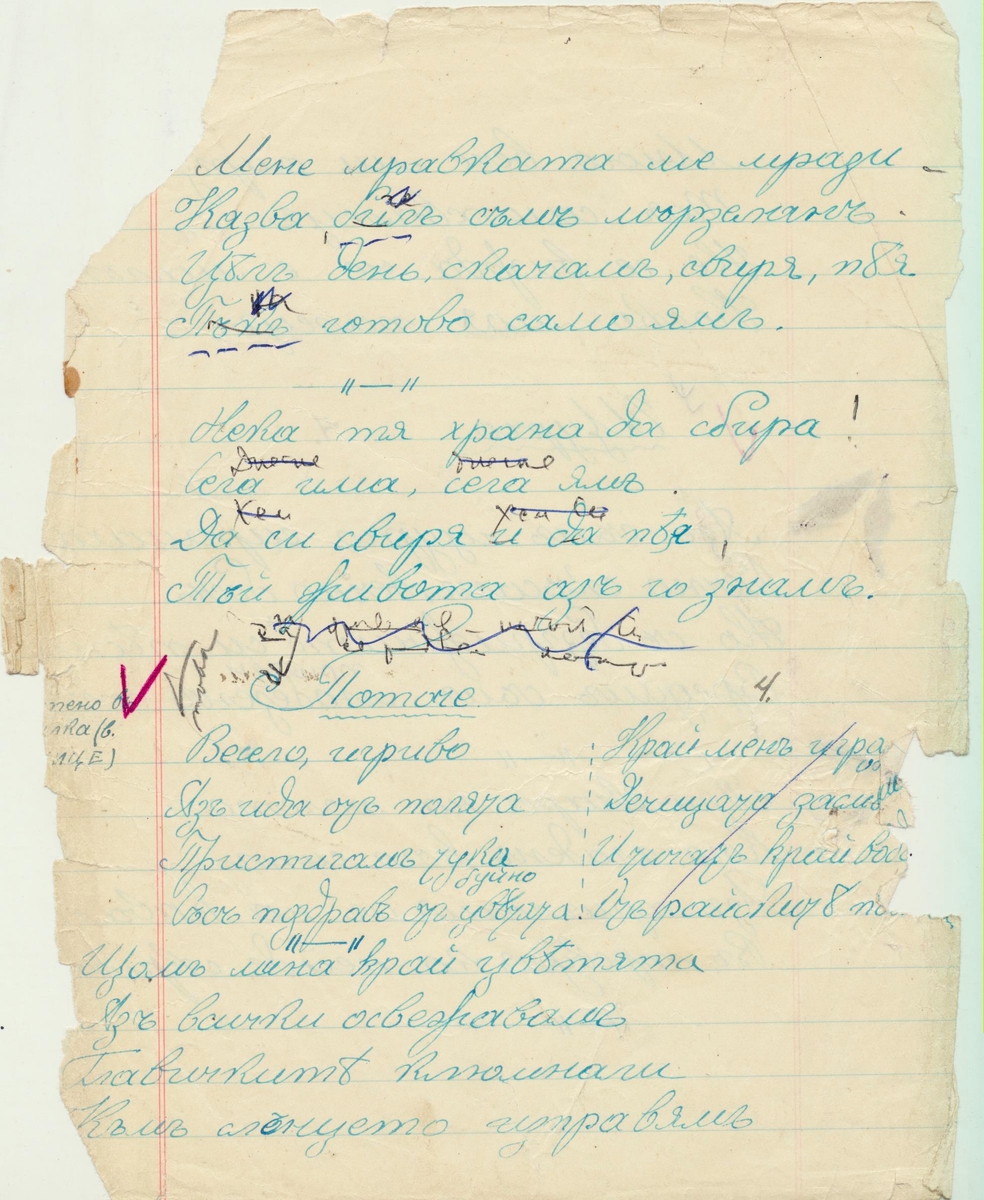 Мене мравката ме мрази
Казва билъ съмъ мързеланъ.
Цѣлъ день, скачамъ, свиря, пѣя
Пъкъ готово само ямъ.
"—"
Нека тя храна да сбира!
Днесне днесне
Сега има, сега ямъ.
Хем хем да
Да си свиря и да пѣя,
Тъй живота азъ го знамъ.
Поточе 4.
Весело, игриво
Язъ ида отъ полята
Пристигамъ тука
буйно
Съсъ поздравъ отъ цвѣтята:
Край менъ игра
Дечицата
Итичатъ край вода
Отъ райскитѣ
"—"
Щомъ мина край цвѣтята
Язъ всички освежавамъ
Главичкитѣ клюмнали
Къмъ слънцето управямъ